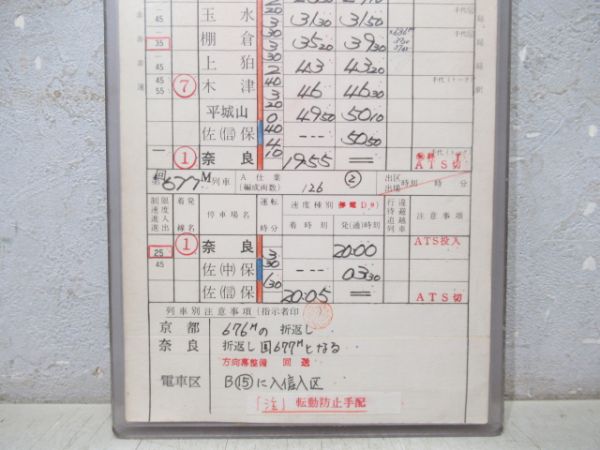 45 玉水 3 31 30 31 50
35 棚倉 3 35 20 39 30
45 上狛 2 43 43 20
45 55 ⑦ 木津 40 3 46 46 30
平城山 20 0 49 50 50 10
佐(信)保 40 --- 50 50
① 奈良 10 19 55 = ATS切
回677M列車 A仕業 (編成両数) 126 ② 出区 出場 時刻 時 分
制限速度 進入 進出 着発線名 停車場名 運転時分 速度種別 停電D9) 着時刻 発(通)時刻 行違 待避 追越 列車 注意事項
25 ① 奈良 3 20:00 ATS投入
45 佐(中)保 30 --- 03 30
佐(信)保 1 30 20:05 = ATS切
列車別注意事項(指示者印
京都 676Mの 折返し
奈良 折返し 回677Mとなる
方向幕整備 回送
電車区 B⑮に入信入区
(注) 転動防止手配